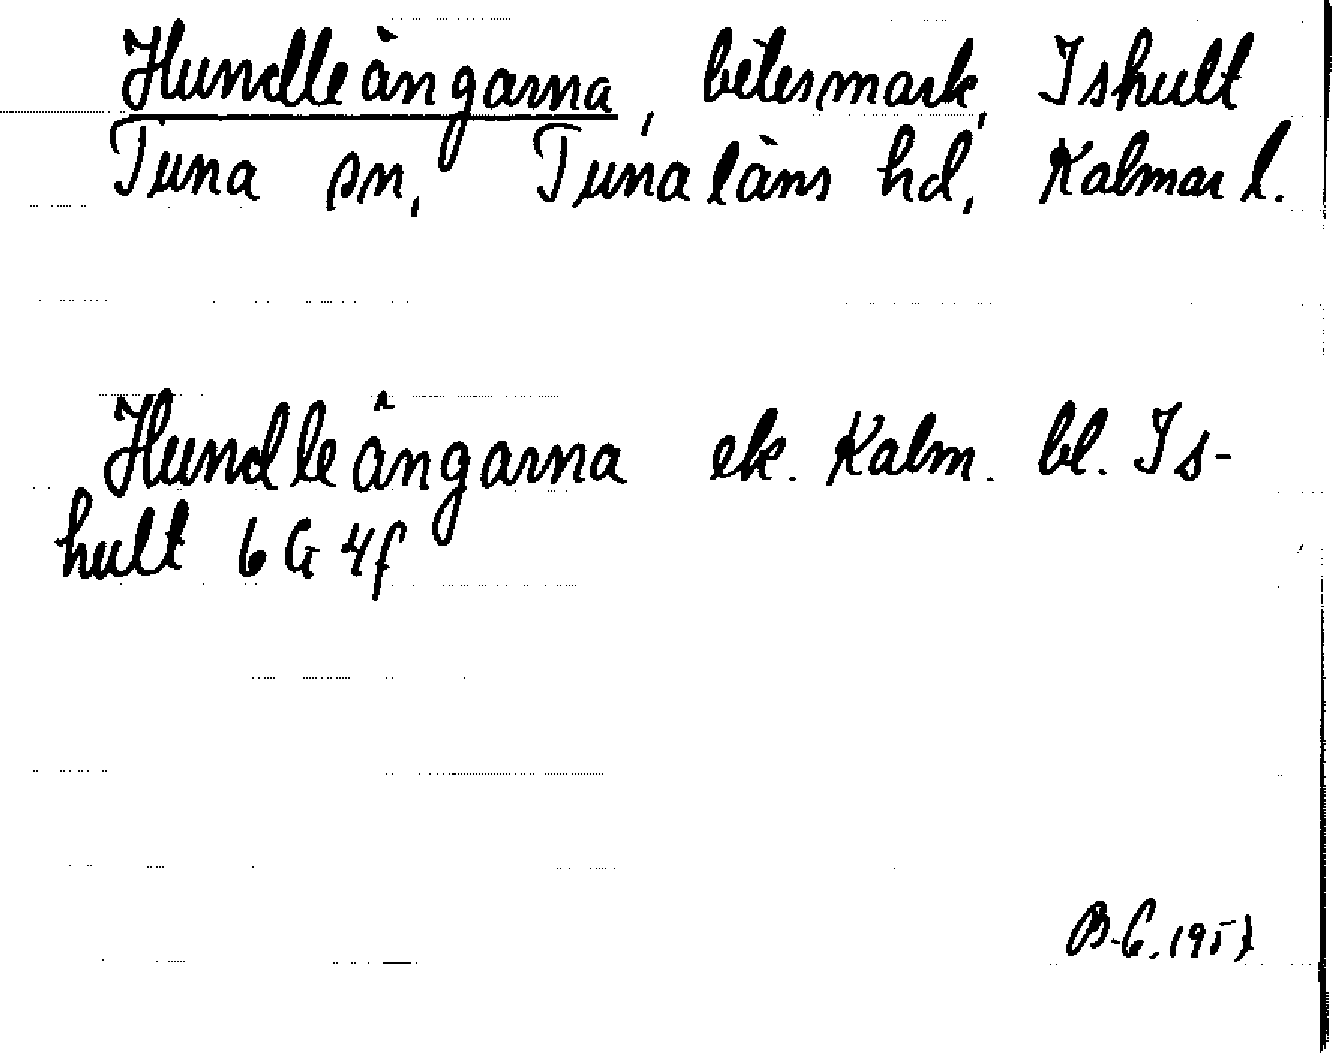 Hundleängarna, betesmark, Ishult
Tuna sn, Tunaläns hd, Kalmar l.
Hundleängarna ek. Kalm. bl. Is-
hult 6 G 4f